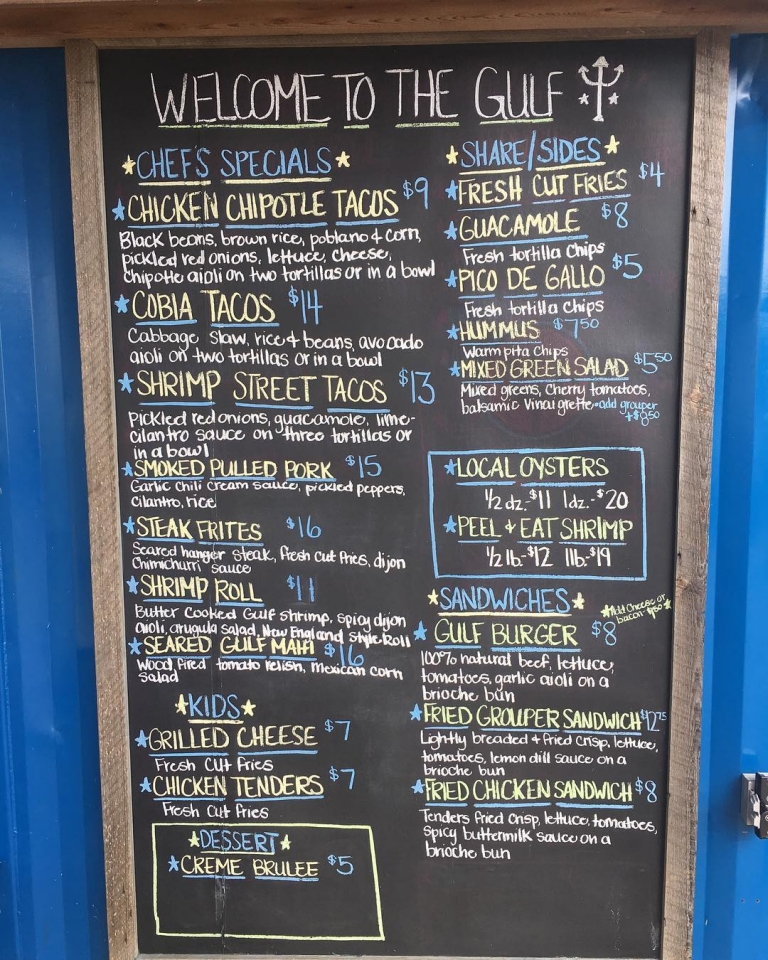 WELCOME TO THE GULF
CHEF'S SPECIALS
CHICKEN CHIPOTLE TACOS $9
Black beans, brown rice, poblano & corn,
pickled red onions, lettuce, cheese,
chipotle aioli on two tortillas or in a bowl
COBIA TACOS $14
Cabbage slaw, rice & beans, avocado
aioli on two tortillas or in a bowl
SHRIMP STREET TACOS $13
Pickled red onions, guacamole, lime-
cilantro sauce on three tortillas or
in a bowl
SMOKED PULLED PORK $15
Garlic chili cream sauce, pickled peppers,
cilantro, rice
STEAK FRITES $16
Seared hanger steak, fresh cut fries, dijon
chimichurri sauce
SHRIMP ROLL $11
Butter cooked Gulf shrimp, spicy dijon
aioli, arugula salad, New England style roll
SEARED GULF MAHI $16
Wood fired tomato relish, mexican corn
salad
KIDS
GRILLED CHEESE $7
Fresh cut fries
CHICKEN TENDERS $7
Fresh cut fries
DESSERT
CREME BRULEE $5
SHARE/SIDES
FRESH CUT FRIES $4
GUACAMOLE $8
Fresh tortilla chips
PICO DE GALLO $5
Fresh tortilla chips
HUMMUS $7.50
Warm pita chips
MIXED GREEN SALAD $5.50
Mixed greens, cherry tomatoes,
balsamic vinaigrette -add grouper
+$8.50
LOCAL OYSTERS
1/2 dz.-$11 1dz.-$20
PEEL & EAT SHRIMP
1/2 lb.-$12 1lb.-$19
SANDWICHES
Add cheese or
bacon $1.50
GULF BURGER $8
100% natural beef, lettuce,
tomatoes, garlic aioli on a
brioche bun
FRIED GROUPER SANDWICH $12.75
Lightly breaded & fried crisp, lettuce,
tomatoes, lemon dill sauce on a
brioche bun
FRIED CHICKEN SANDWICH $8
Tenders fried crisp, lettuce, tomatoes,
spicy buttermilk sauce on a
brioche bun